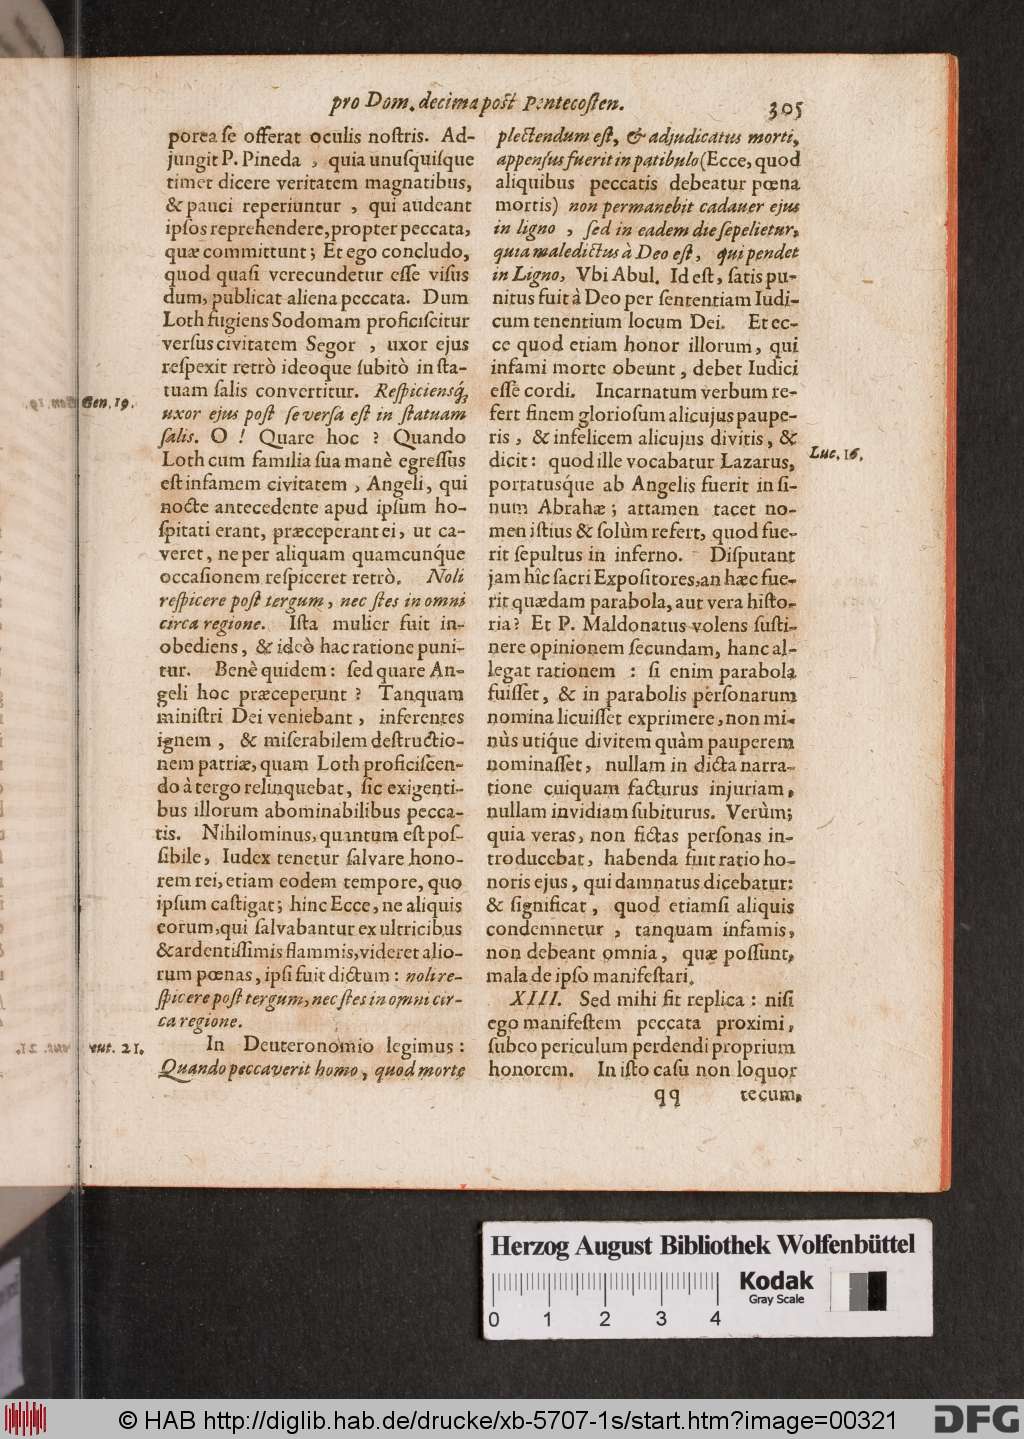 pro Dom. decima post Pentecosten.
305
porea se offerat oculis nostris. Ad-
jungit P. Pineda , quia unusquisque
timet dicere veritatem magnatibus,
& pauci reperiuntur , qui audeant
ipsos reprehendere, propter peccata,
quæ committunt; Et ego concludo,
quod quasi verecundetur esse visus
dum, publicat aliena peccata. Dum
Loth fugiens Sodomam proficiscitur
versus civitatem Segor , uxor ejus
respexit retrò ideoque subitò in sta-
tuam salis convertitur. Respiciensq́;
uxor ejus post se versa est in statuam
salis. O ! Quare hoc ? Quando
Loth cum familia sua manè egressus
est infamem civitatem , Angeli, qui
nocte antecedente apud ipsum ho-
spitati erant, præceperant ei, ut ca-
veret, ne per aliquam quamcunq́ue
occasionem respiceret retrò. Noli
respicere post tergum, nec stes in omni
circa regione. Ista mulier fuit in-
obediens, & ideò hac ratione puni-
tur. Benè quidem: sed quare An-
geli hoc præceperunt ? Tanquam
ministri Dei veniebant, inferentes
ignem , & miserabilem destructio-
nem patriæ, quam Loth proficiscen-
do à tergo relinquebat, sic exigenti-
bus illorum abominabilibus pecca-
tis. Nihilominus, quantum est pos-
sibile, Iudex tenetur salvare hono-
rem rei, etiam eodem tempore, quo
ipsum castigat; hinc Ecce, ne aliquis
eorum, qui salvabantur ex ultricibus
& ardentissimis flammis, videret alio-
rum pœnas, ipsi fuit dictum: noli re-
spicere post tergum, nec stes in omni cir-
ca regione.
In Deuteronomio legimus:
Quando peccaverit homo, quod morte
Gen. 19.
eut. 21.
plectendum est, & adjudicatus morti,
appensus fuerit in patibulo (Ecce, quod
aliquibus peccatis debeatur pœna
mortis) non permanebit cadauer ejus
in ligno , sed in eadem die sepelietur,
quia maledictus à Deo est, qui pendet
in Ligno, Vbi Abul. Id est, satis pu-
nitus fuit à Deo per sententiam Iudi-
cum tenentium locum Dei. Et ec-
ce quod etiam honor illorum, qui
infami morte obeunt, debet Iudici
esse cordi. Incarnatum verbum re-
fert finem gloriosum alicujus paupe-
ris, & infelicem alicujus divitis, &
dicit: quod ille vocabatur Lazarus,
portatusq́ue ab Angelis fuerit in si-
num Abrahæ; attamen tacet no-
men istius & solùm refert, quod fue-
rit sepultus in inferno. Disputant
jam hîc sacri Expositores, an hæc fue-
rit quædam parabola, aut vera histo-
ria? Et P. Maldonatus volens susti-
nere opinionem secundam, hanc al-
legat rationem : si enim parabola
fuisset, & in parabolis personarum
nomina licuisset exprimere, non mi-
nùs utiq́ue divitem quàm pauperem
nominasset, nullam in dicta narra-
tione cuiquam facturus injuriam,
nullam invidiam subiturus. Verùm;
quia veras, non fictas personas in-
troducebat, habenda fuit ratio ho-
noris ejus, qui damnatus dicebatur:
& significat, quod etiamsi aliquis
condemnetur , tanquam infamis,
non debeant omnia, quæ possunt,
mala de ipso manifestari.
XIII. Sed mihi fit replica: nisi
ego manifestem peccata proximi,
subeo periculum perdendi proprium
honorem. In isto casu non loquor
Luc. 16.
qq tecum,
Herzog August Bibliothek Wolfenbüttel
0 1 2 3 4
Kodak
Gray Scale
© HAB http://diglib.hab.de/drucke/xb-5707-1s/start.htm?image=00321
DFG